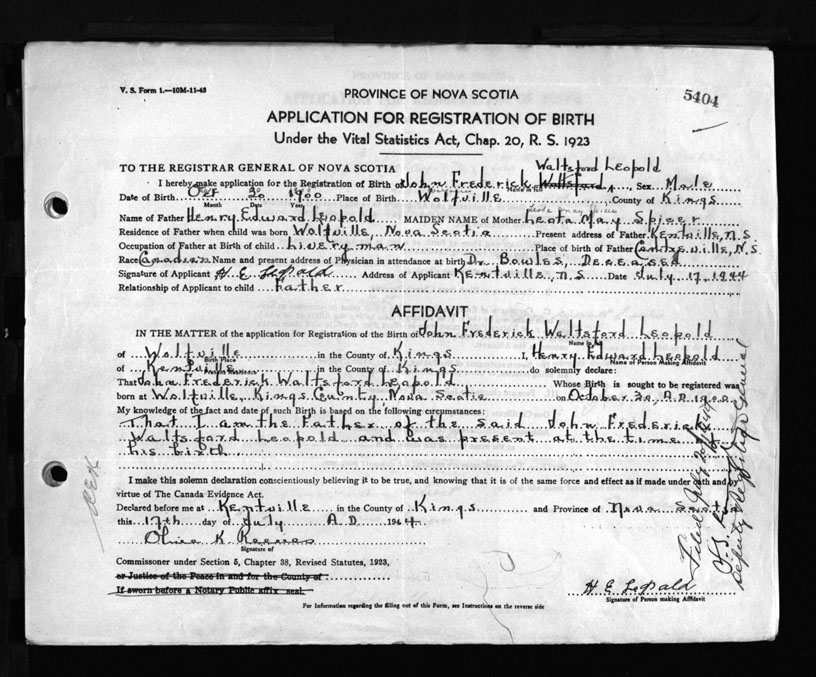 V. S. Form 1.—10M-11-43
5404
PROVINCE OF NOVA SCOTIA
APPLICATION FOR REGISTRATION OF BIRTH
Under the Vital Statistics Act, Chap. 20, R. S. 1923
TO THE REGISTRAR GENERAL OF NOVA SCOTIA
Waltsford Leopold
I hereby make application for the Registration of Birth of John Frederick Waltsford, Sex Male
Name in full
Date of Birth Oct 30 1900 Place of Birth Wolfville County of Kings
Month Date Year
Name of Father Henry Edward Leopold MAIDEN NAME of Mother Leota May Spicer
Residence of Father when child was born Wolfville, Nova Scotia Present address of Father Kentville, N.S
Occupation of Father at Birth of child liveryman Place of birth of Father Centreville, N.S.
Race Canadian Name and present address of Physician in attendance at birth Dr. Bowles, Deceased
Signature of Applicant H E Lepald Address of Applicant Kentville, N.S Date July 17, 1944
Relationship of Applicant to child Father
AFFIDAVIT
IN THE MATTER of the application for Registration of the Birth of John Frederick Waltsford Leopold
Name in full
of Wolfville in the County of Kings I, Henry Edward Leopold
Birth Place Name of Person Making Affidavit
of Kentville in the County of Kings do solemnly declare:
Present Residence
That John Frederick Waltsford Leopold Whose Birth is sought to be registered was
born at Wolfville, Kings County, Nova Scotia on October 30, A.D. 1900
My knowledge of the fact and date of such Birth is based on the following circumstances:
That I am the Father of the said John Frederick
Waltsford Leopold and was present at the time
his birth
I make this solemn declaration conscientiously believing it to be true, and knowing that it is of the same force and effect as if made under oath and by
virtue of The Canada Evidence Act.
Declared before me at Kentville in the County of Kings and Province of Nova Scotia
this 17th day of July A.D. 1944
Signature of
Commissioner under Section 5, Chapter 38, Revised Statutes, 1923,
or Justice of the Peace in and for the County of
If sworn before a Notary Public affix seal.
H E Lepald
Signature of Person making Affidavit
For Information regarding the filling out of this Form, see Instructions on the reverse side
Filed July 20 1944
Deputy Registrar General